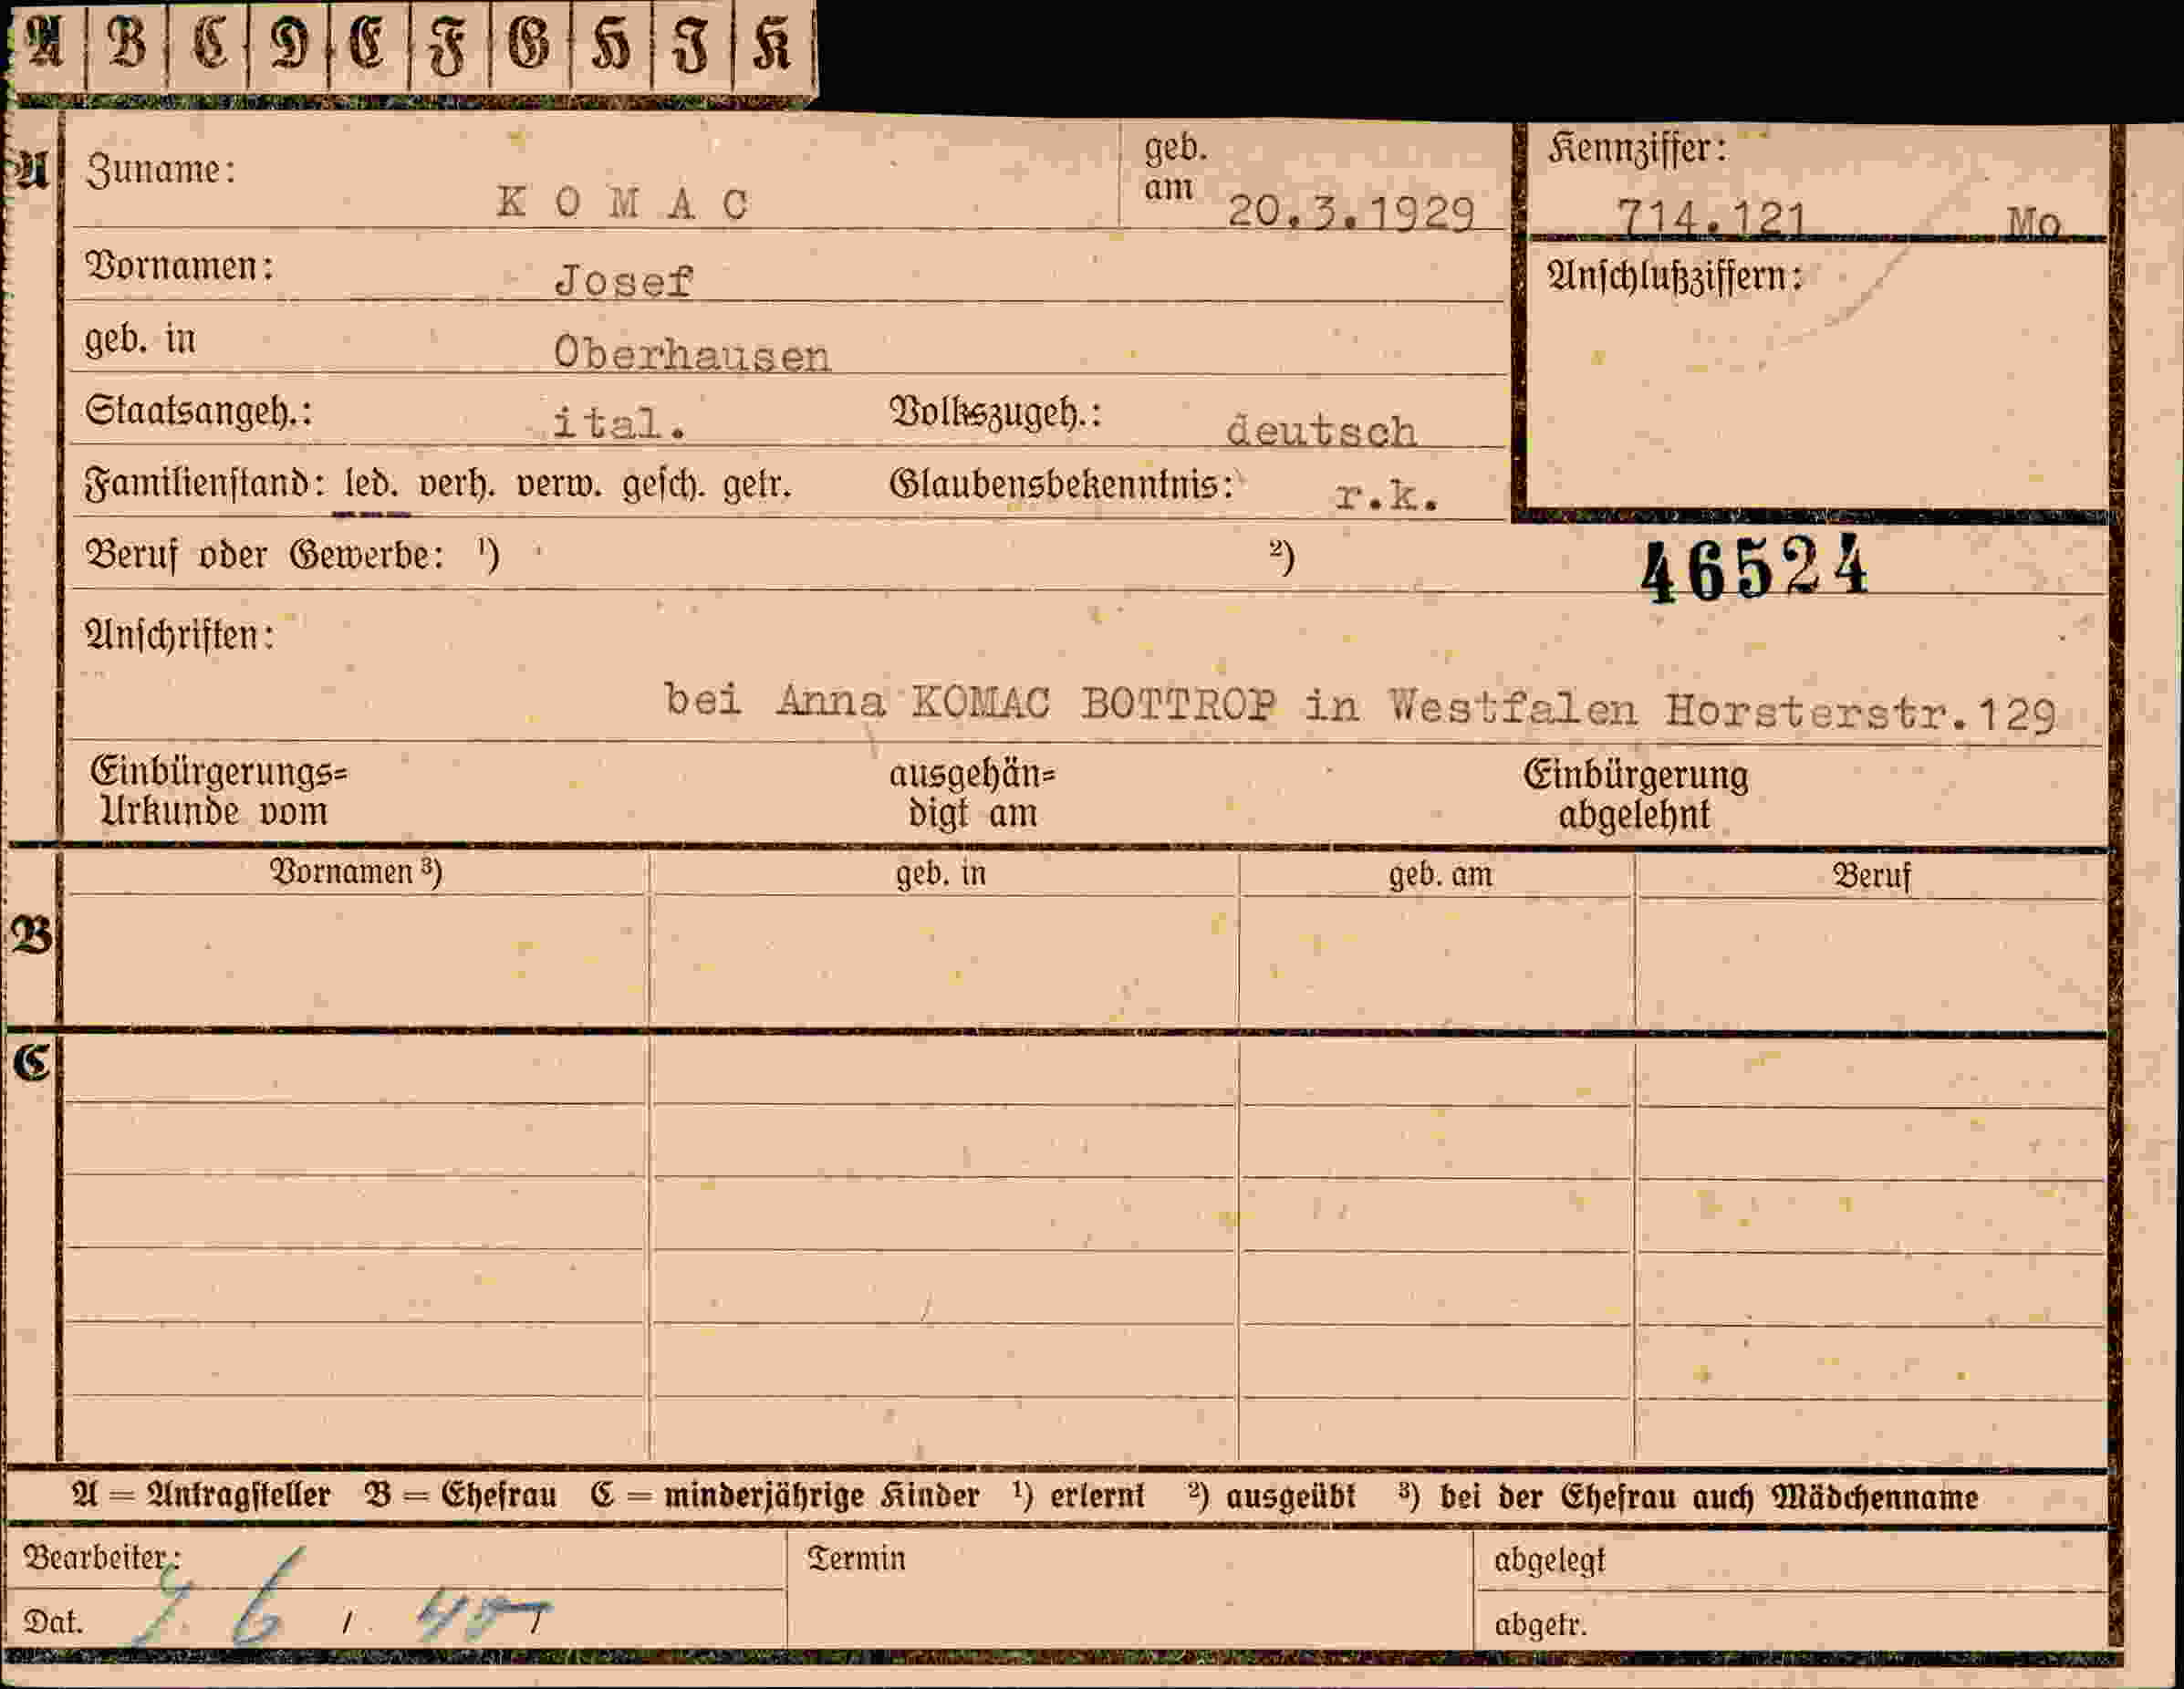 A B C D E F G H J K
A Zuname: KOMAC geb. am 20.3.1929 Kennziffer: 714.121 Mo
Vornamen: Josef Anschlußziffern:
geb. in Oberhausen
Staatsangeh.: ital. Volkszugeh.: deutsch
Familienstand: led. verh. verw. gesch. getr. Glaubensbekenntnis: r.k.
Beruf oder Gewerbe: ¹) ²) 46524
Anschriften:
bei Anna KOMAC BOTTROP in Westfalen Horsterstr.129
Einbürgerungs= ausgehän= Einbürgerung
Urkunde vom digt am abgelehnt
Vornamen ³) geb. in geb. am Beruf
B
C
A = Antragsteller B = Ehefrau C = minderjährige Kinder ¹) erlernt ²) ausgeübt ³) bei der Ehefrau auch Mädchenname
Bearbeiter: Termin abgelegt
Dat. abgetr.